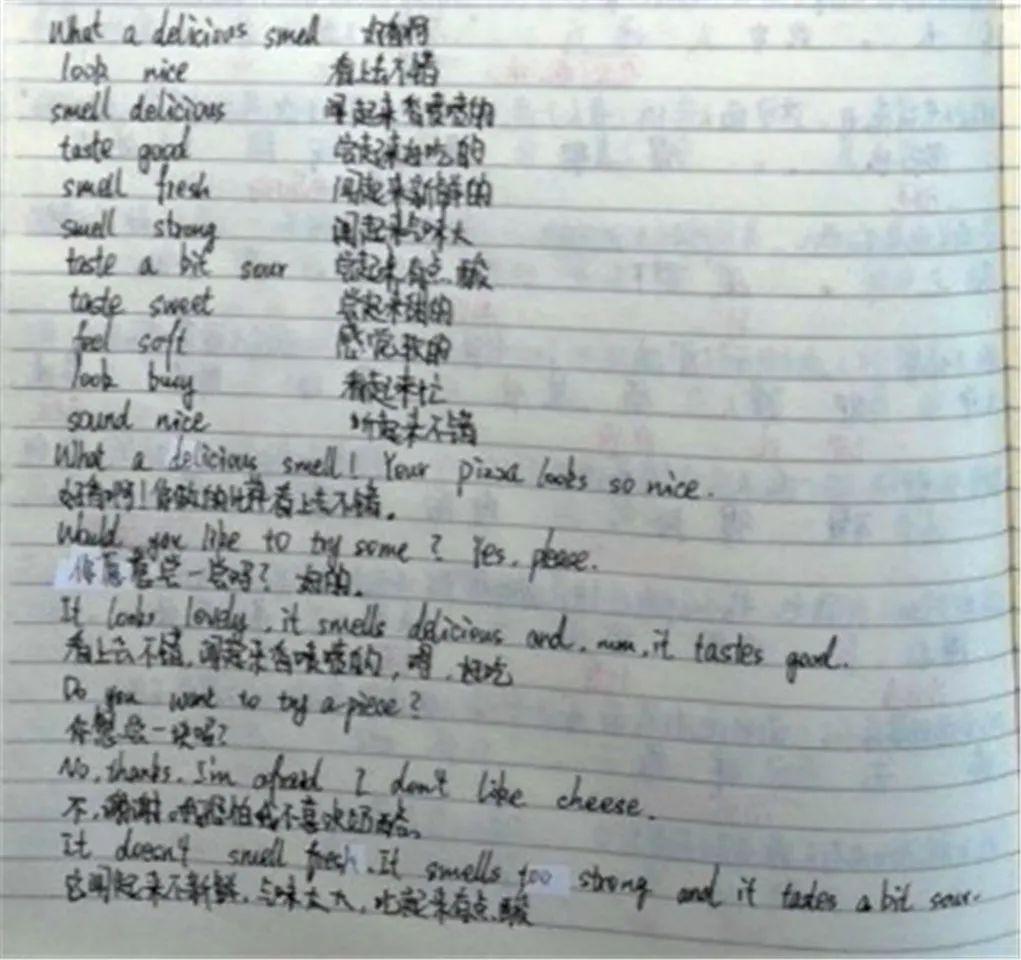 What a delicious smell 好香啊
look nice 看上去不错
smell delicious 闻起来香喷喷的
taste good 尝起来好吃的
smell fresh 闻起来新鲜的
smell strong 闻起来气味大
taste a bit sour 尝起来有点酸
taste sweet 尝起来甜的
feel soft 感觉软的
look busy 看起来忙
sound nice 听起来不错
What a delicious smell! Your pizza looks so nice.
好香啊!你做的比萨看上去不错。
Would you like to try some? Yes, please.
你愿意尝一尝吗? 好的。
It looks lovely, it smells delicious and, mm, it tastes good.
看上去不错,闻起来香喷喷的,嗯,好吃
Do you want to try a piece?
你想尝一块吗?
No, thanks. I'm afraid I don't like cheese.
不,谢谢,我恐怕我不喜欢奶酪。
It doesn't smell fresh. It smells too strong and it tastes a bit sour.
它闻起来不新鲜,气味太大,吃起来有点酸